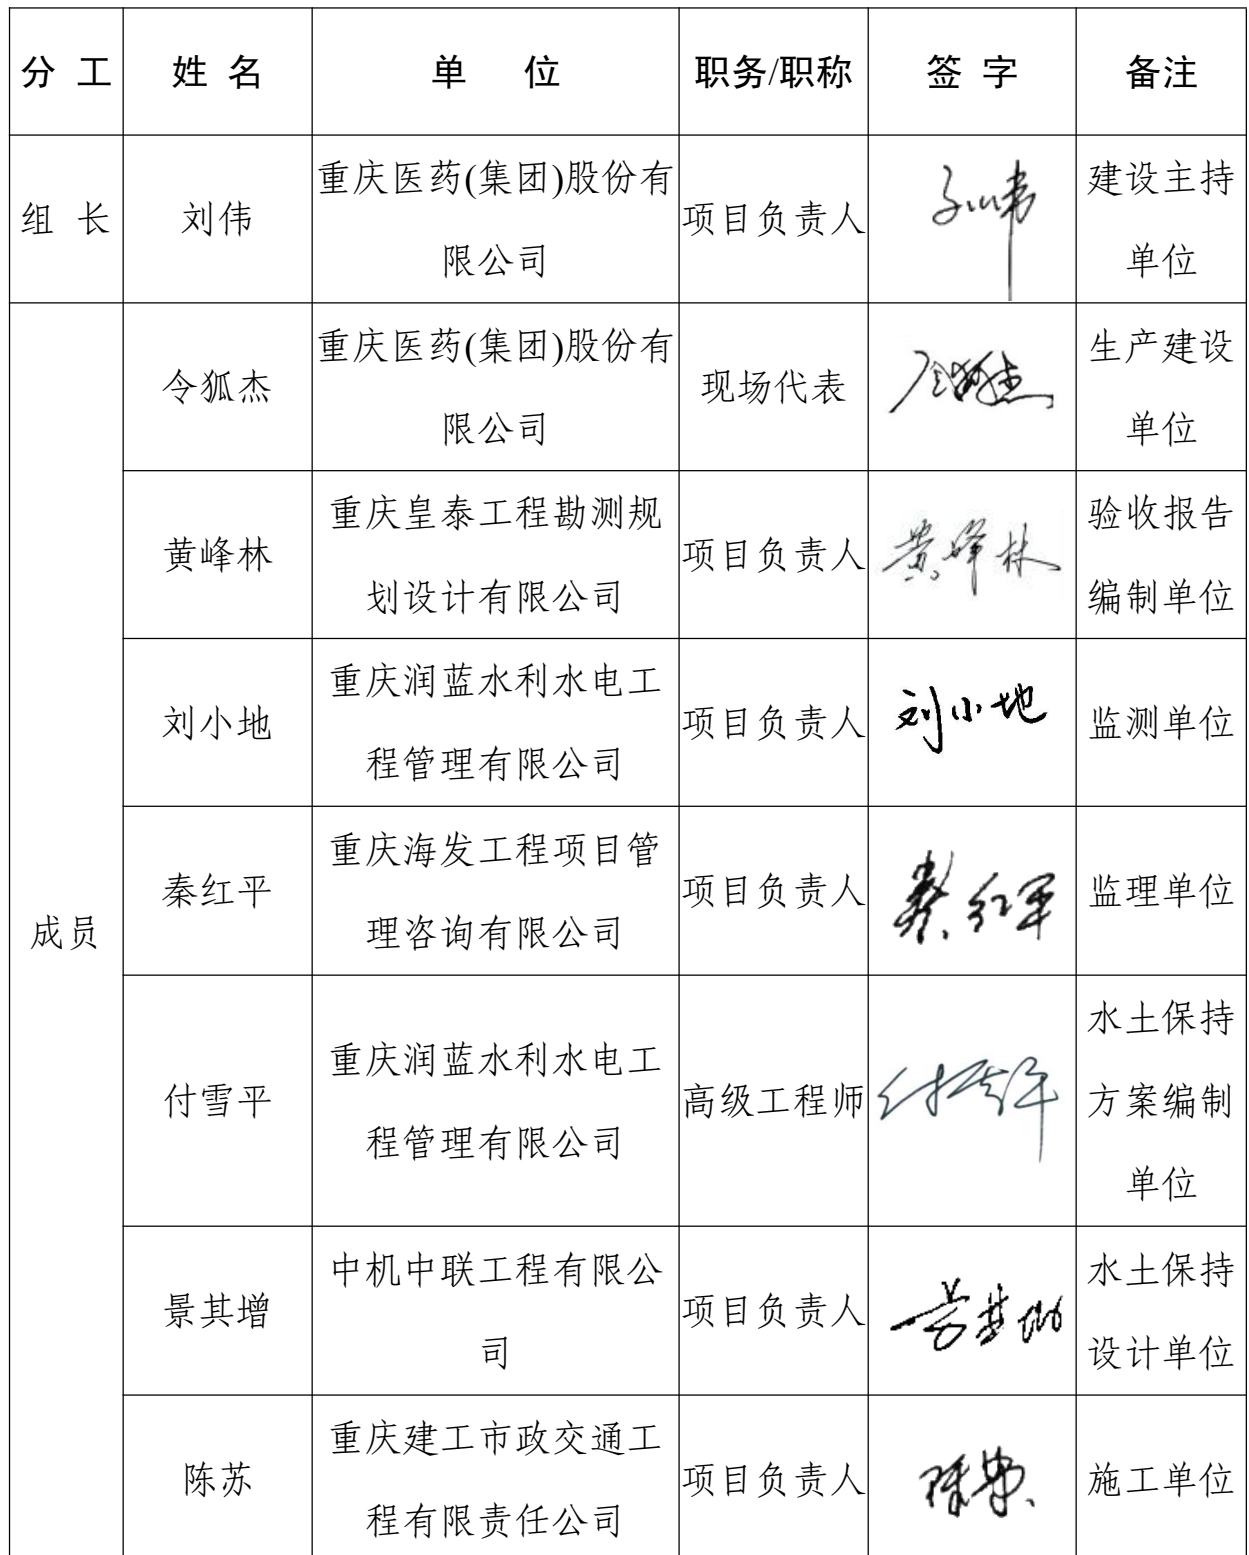 分 工 姓 名 单 位 职务/职称 签 字 备注
组 长 刘伟 重庆医药(集团)股份有限公司 项目负责人 建设主持单位
成员
令狐杰 重庆医药(集团)股份有限公司 现场代表 生产建设单位
黄峰林 重庆皇泰工程勘测规划设计有限公司 项目负责人 黄峰林 验收报告编制单位
刘小地 重庆润蓝水利水电工程管理有限公司 项目负责人 刘小地 监测单位
秦红平 重庆海发工程项目管理咨询有限公司 项目负责人 监理单位
付雪平 重庆润蓝水利水电工程管理有限公司 高级工程师 水土保持方案编制单位
景其增 中机中联工程有限公司 项目负责人 水土保持设计单位
陈苏 重庆建工市政交通工程有限责任公司 项目负责人 施工单位